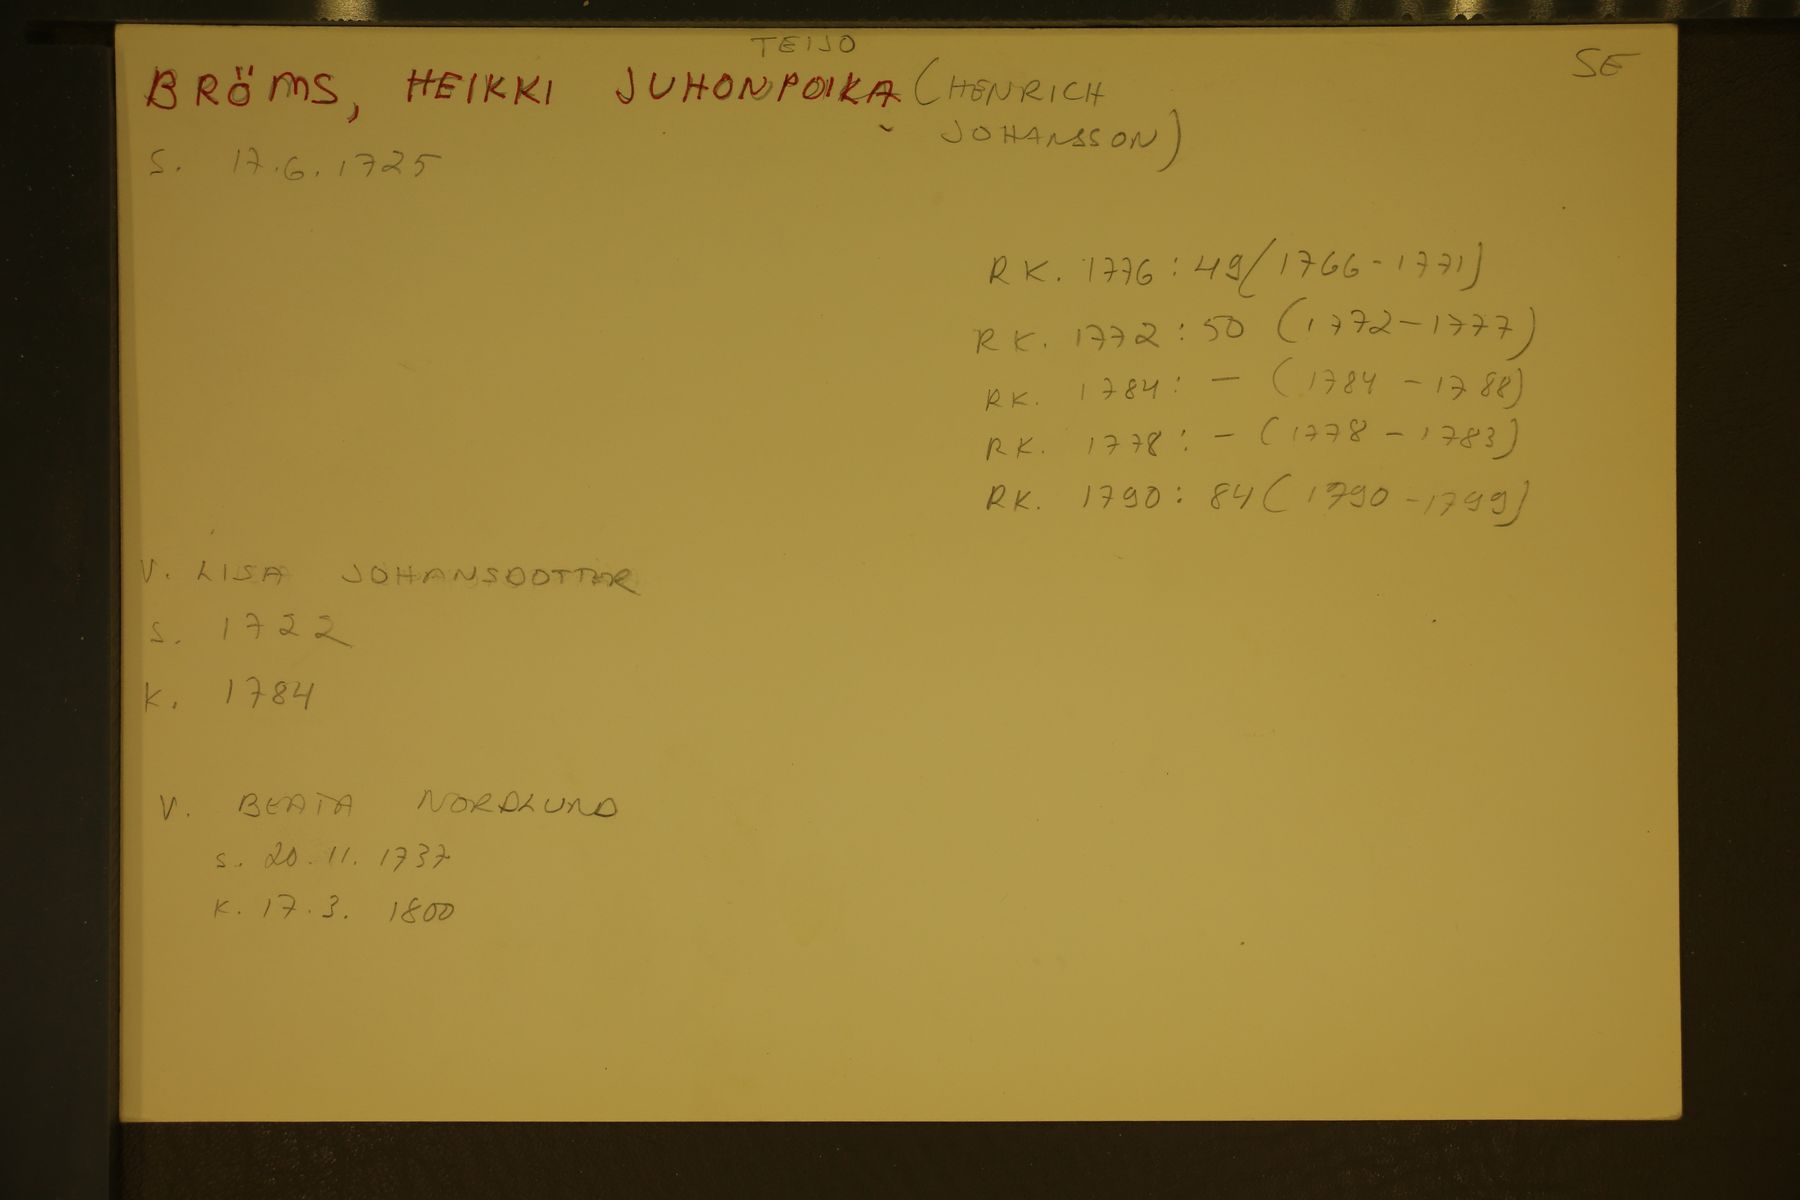 TEIJO
SE
BRÖMS, HEIKKI JUHONPOIKA (HENRICH
JOHANSSON)
S. 17.6.1725
RK. 1776: 49 (1766-1771)
RK. 1772: 50 (1772-1777)
RK. 1784: - (1784 - 1788)
RK. 1778: - (1778 - 1783)
RK. 1790: 84 (1790 - 1799)
V. LISA JOHANSDOTTER
S. 1722
K. 1784
V. BEATA NORDLUND
S. 20.11.1737
K. 17.3.1800